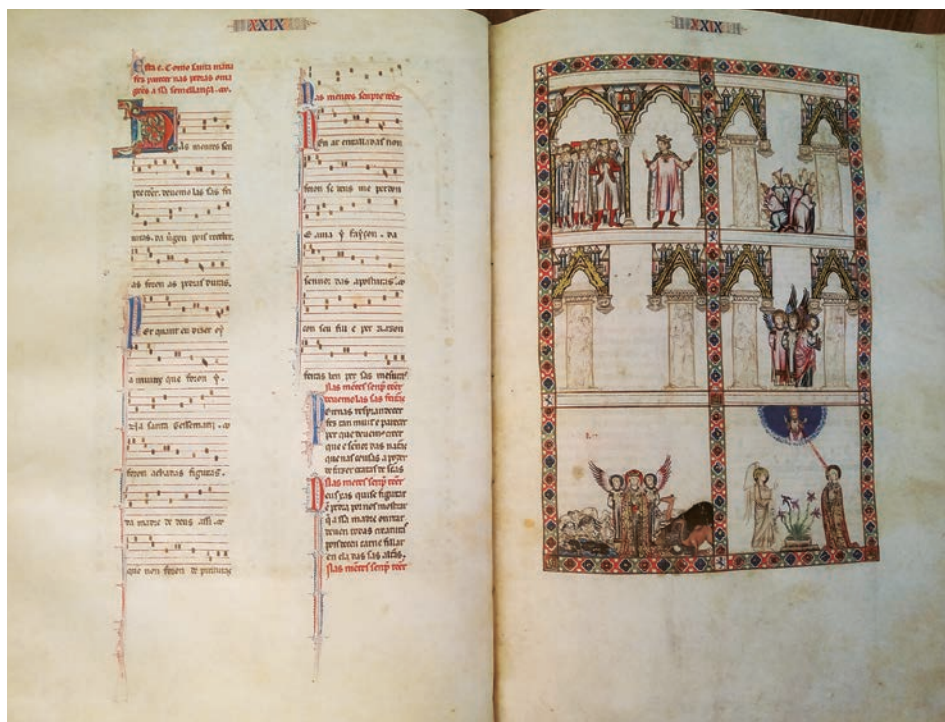 XXIX
Esta e. Como santa maria
fez parecer nas pedras oma
gẽes a ssa semellança.
Nas mentes sen
pre tẽer. devemo las sas fei
turas. da virgen pois receber.
as foron as pedras duras.
Per quant eu dizer oy
a muitos que foron y.
na santa Gessemani.
foron achadas figuras.
da madre de deus assi.
que non foron de pinturas
Nas mentes senpre tẽer.
Nen ar entalladas non
foron se deus me perdon
e avia y fayçon. da
sennor das aposturas.
con seu fill e per razon
feitas ben per sas mesuras
Nas mẽtes senp̃ tẽer
devemo las sas feitur̃
fez tan muit e parecer
per que devemos creer
que e sẽnor das natur̃
que nas cousas a poder
de fazer craras d escuras
Nas mentes senp̃ tẽer
Deus xas quise figurar
en pedra por nos mostrar
q̃ a ssa madre onrrar
deven todas creaturas
pois deceu carne fillar
en ela das sas alturas.
Nas mentes senp̃ tẽer
XXIX